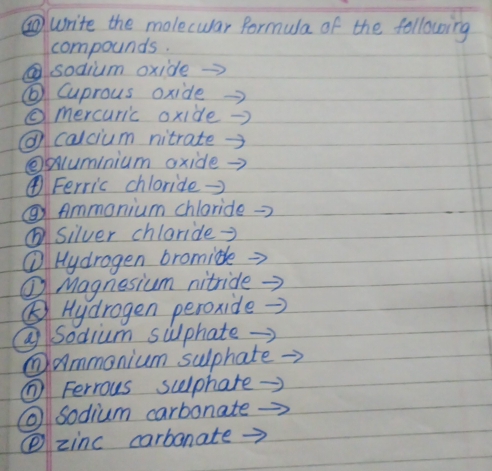 (10) Write the molecular formula of the following
compounds.
(a) Sodium oxide →
(b) Cuprous oxide →
(c) Mercuric oxide →
(d) Calcium nitrate →
(e) Aluminium oxide →
(f) Ferric chloride →
(g) Ammonium chloride →
(h) Silver chloride →
(i) Hydrogen bromide →
(j) Magnesium nitride →
(k) Hydrogen peroxide →
(l) Sodium sulphate →
(m) Ammonium sulphate →
(n) Ferrous sulphate →
(o) Sodium carbonate →
(p) zinc carbonate →